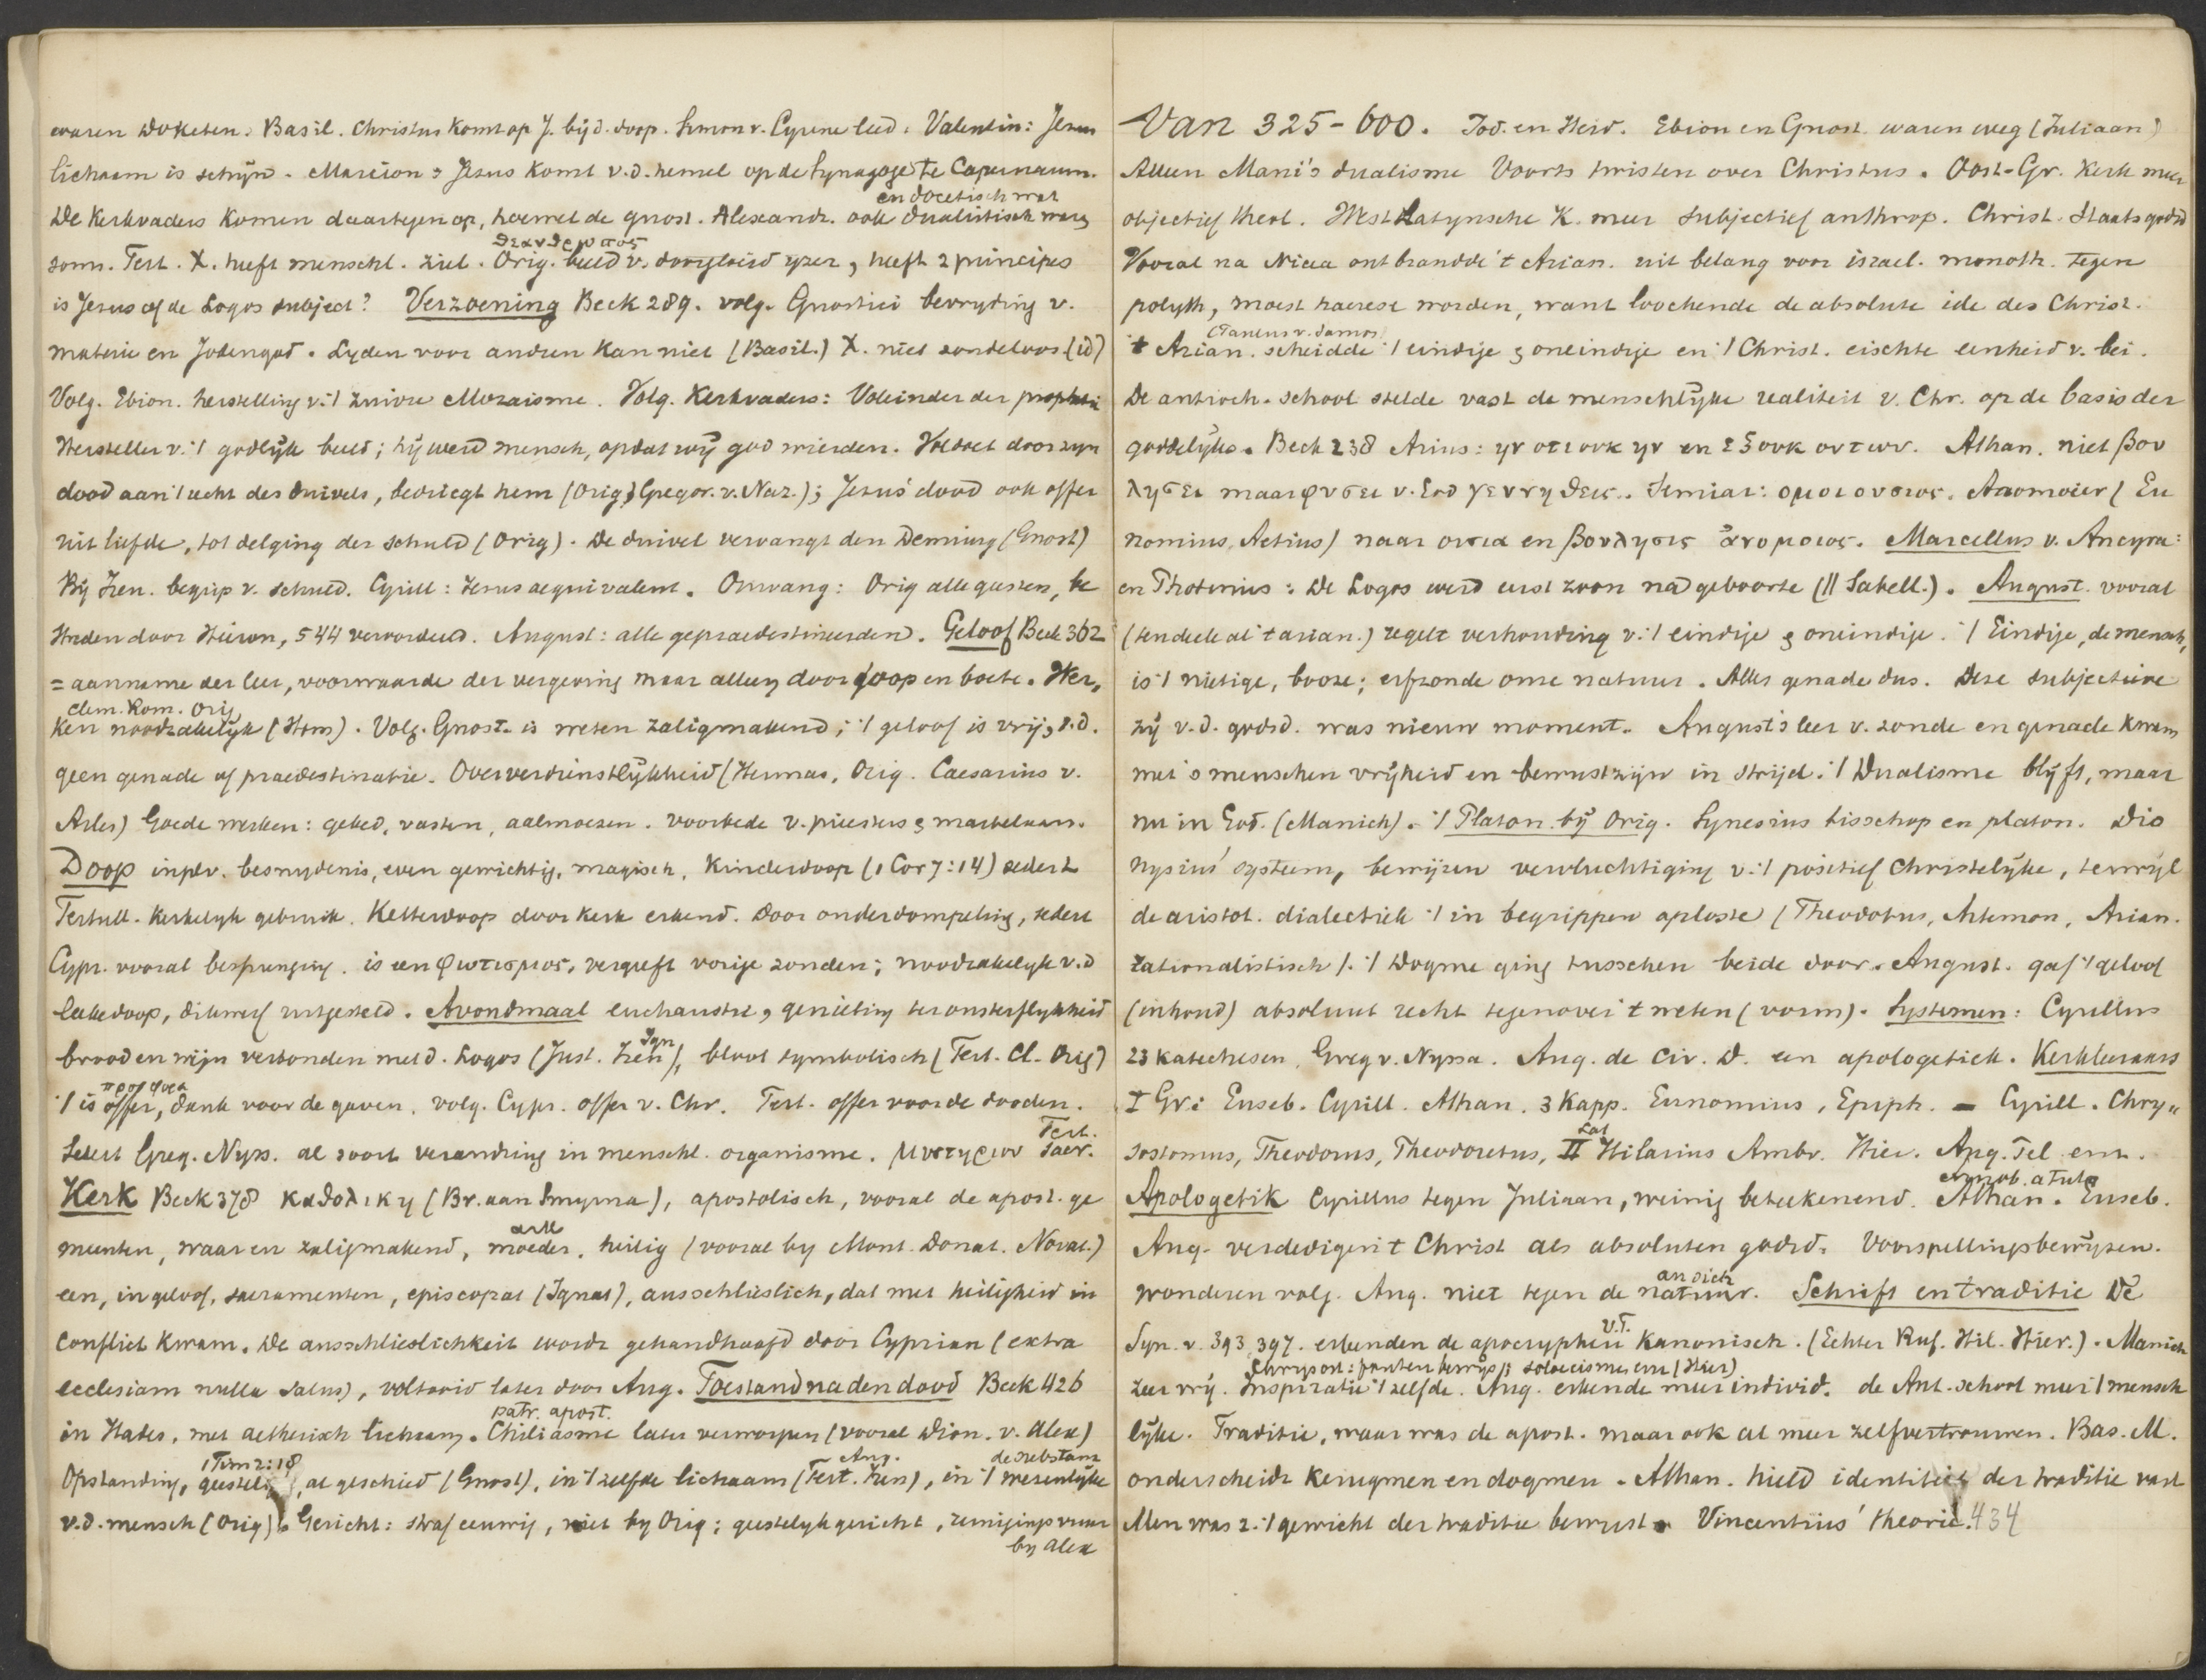 waren Doketen. Basil. Christus komt op J. bij d. doop. Simon v. Cyrene leed. Valentin: Jezus
lichaam is schijn. Marcion: Jezus komt v.d. hemel op de Synagoge te Capernaum.
en docetisch wat
De Kerkvaders komen daartegen op, hoewel de gnost. Alexandr. ook dualistisch waren
θεανθρωπος
soms. Tert. X. heeft menschl. ziel. Orig. beeld v. doorgloeid yzer, heeft 2 principes
is Jezus of de Logos subject? Verzoening Beck 289. volg. Gnostici bevryding v.
materie en Jodengod. Lyden voor andren kan niet (Basil.) X. niet zondeloos (id)
Volg. Ebion. herstelling v. 't zuivre Mozaisme. Volg. Kerkvaders: Voleinder der prophetie
Hersteller v. 't godlijk beeld; hij werd mensch, opdat wij god wierden. Voldoet door zyn
dood aan 't recht des duivels, bedriegt hem (Orig; Gregor. v. Naz.); Jezus' dood ook offer
uit liefde, tot delging der schuld (Orig). De duivel vervangt den Demiurg (Gnost)
Bij Iren. begrip v. schuld. Cyrill: Jezus aequivalent. Omvang: Orig alle geesten, be
streden door Hieron, 544 veroordeeld. August: alle gepraedestineerden. Geloof Beck 362
= aanname der leer, voorwaarde der vergeving maar alleen door doop en boete. Wer,
clem. Rom. Orig
ken noodzakelijk (Herm). Volg. Gnost. is weten zaligmakend; 't geloof is vrij, d.
geen genade of praedestinatie. Oververdienstlijkheid (Hermas, Orig. Caesarius v.
Arles) Goede werken: gebed, vasten, aalmoezen. voorbede v. priesters & martelaars.
Doop inplv. besnydenis, even gewichtig, magisch, Kinderdoop (1 Cor 7:14) sedert
Tertull. kerkelyk gebruik. Ketterdoop door kerk erkend. Door onderdompeling, sedert
Cypr. vooral besprenging. is een φωτισμος, vergeeft vorige zonden; noodzakelyk v.d
leekedoop, dikwerf uitgesteld. Avondmaal eucharistie, genieting ter onsterflykheid
Ign
brood en wijn verbonden met d. Logos (Just. Iren), bloot symbolisch (Tert. Cl. Orig)
προσφορα
't is offer, dank voor de gaven, volg. Cypr. offer v. Chr. Tert. offer voor de dooden.
Tert.
Sedert Greg. Nyss. al soort verandring in menschl. organisme. μυστηριον sacr.
Kerk Beck 378 καθολικη (Br. aan Smyrna), apostolisch, vooral de apost. ge
ark
meenten, waar en zaligmakend, moeder, heilig (vooral by Mont. Donat. Novat.)
een, in geloof, sacramenten, episcopat (Ignat), ausschlieslich, dat met heiligheid in
conflict kwam. De ausschlieslichkeit wordt gehandhaafd door Cyprian (extra
ecclesiam nulla salus), voltooid later door Aug. Toestand na den dood Beck 426
patr. apost.
in Hades, met aetherisch lichaam. Chiliasme later verworpen (vooral Dion. v. Alex)
1 Tim 2:18 Aug. de substanz
Opstanding, geestelijk, al geschied (Gnost), in 't zelfde lichaam (Tert. Iren), in 't wezenlijke
v.d. mensch (Orig). Gericht: straf eeuwig, niet by Orig; geestelyk gericht, reinigingsvuur
by Alex
Van 325-600. Jod. en Heid. Ebion en Gnost. waren weg (Juliaan)
Alleen Mani's dualisme Voorts twisten over Christus. Oost-Gr. Kerk meer
objectief theol. West Latynsche K. meer subjectief anthrop. Christ. Staatsgodsd
Vooral na Nicea ontbrandde 't Arian. uit belang voor israel. monoth. tegen
polyth, moest haerese worden, want loochende de absolute ide des Christ.
(Paulus v. Samos)
't Arian. scheidde 't eindige & oneindige en 't Christ. eischte eenheid v. bei.
De antioch. school stelde vast de menschlijke realiteit v. Chr. op de basis der
goddelijke. Beck 238 Arius: ην οτε ουκ ην en εξ ουκ οντων. Athan. niet βου
λησει maar φυσει v. God γεννηθεις. Semiar: ομοιουσιος. Anomoier (Eu
nomius, Aetius) naar ουσια en βουλησις ἀνομοιος. Marcellus v. Ancyra:
en Photinus: De Logos werd eerst zoon na d geboorte (|| Sabell.). August. vooral
(ten deele al 't arian.) regelt verhouding v. 't eindige & oneindige. 't Eindige, de mensch,
is 't nietige, booze; erfzonde onze natuur. Alles genade dus. Deze subjectieve
zij v.d. godsd. was nieuw moment. August's leer v. zonde en genade kwam
met 's menschen vrijheid en bewustzijn in strijd. 't Dualisme blijft, maar
nu in God. (Manich). 't Platon. bij Orig. Synesius bisschop en platon. Dio
nysius' systeem, bewijzen vervluchtiging v. 't positief Christelijke, terwijl
de aristot. dialectiek 't in begrippen oploste (Theodotus, Artemon, Arian.
rationalistisch). 't Dogme ging tusschen beide door. August. gaf 't geloof
(inhoud) absoluut recht tegenover 't weten (vorm). Systemen: Cyrillus
23 katechesen, Greg v. Nyssa. Aug. de Civ. D. een apologetiek. Kerkleeraars
I Gr: Euseb. Cyrill. Athan. 3 Kapp. Eunomius, Epiph. — Cyrill. Chry,,
Lat
sostomus, Theodorus, Theodoretus, II Hilarius Ambr. Hier. Aug. Pel enz.
Arnob. a Tute
Apologetik Cyrillus tegen Juliaan, weinig beteekenend. Athan. Euseb.
Aug. verdedigen 't Christ als absoluten godsd. Voorspellingsbewijzen.
an sich
wonderen volg. Aug. niet tegen de natuur. Schrift en traditie De
V.T.
Syn. v. 393, 397. erkenden de apocryphen kanonisch. (Echter Ruf. Hil. Hier.). Manich
Chrysost: fouten bewijs); soloecismen enz (Hier)
zeer vrij. Inspiratie 't zelfde. Aug. erkende meer individ. de Ant. school meer 't mensch
lijke. Traditie, waar was de apost. maar ook al meer zelfvertrouwen. Bas. M.
onderscheidt kerugmen en dogmen. Athan. hield identiteit der traditie vast
Men was z. 't gewicht der traditie bewust. Vincentius' theorie. 434